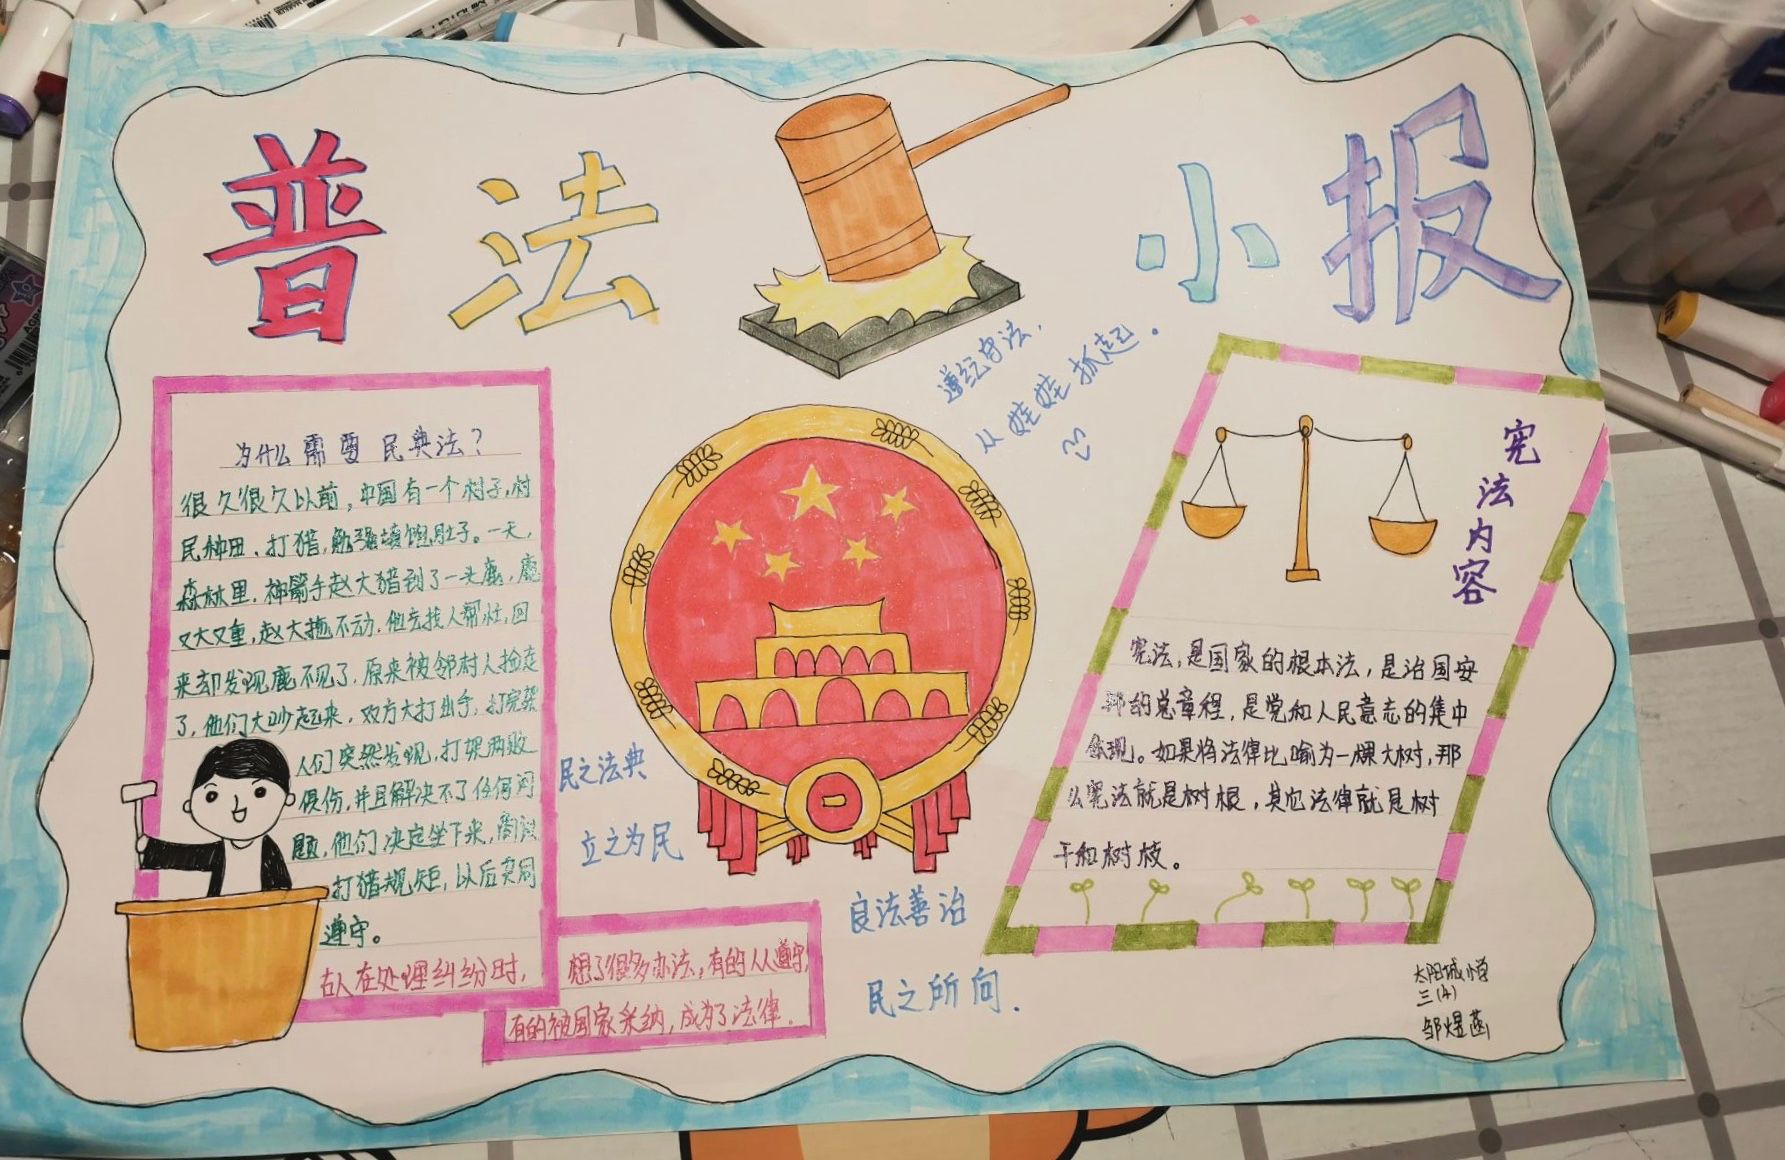 普法小报
遵纪守法，
从娃娃抓起。
为什么需要民典法？
很久很久以前，中国有一个村子，村
民种田、打猎，勉强填饱肚子。一天，
森林里，神箭手赵大猎到了一头鹿，鹿
又大又重，赵大拖不动，他去找人帮忙，回
来却发现鹿不见了，原来被邻村人捡走
了，他们大吵起来，双方大打出手，打完架
人们突然发现，打架两败
俱伤，并且解决不了任何问
题，他们决定坐下来，商议
打猎规矩，以后共同
遵守。
古人在处理纠纷时，
想了很多办法，有的人遵守，
有的被国家采纳，成为了法律．
民之法典
立之为民
良法善治
民之所向．
宪法内容
宪法，是国家的根本法，是治国安
邦的总章程，是党和人民意志的集中
体现。如果将法律比喻为一棵大树，那
么宪法就是树根，其它法律就是树
干和树枝。
太阳城小学
三(4)
邹煜菡